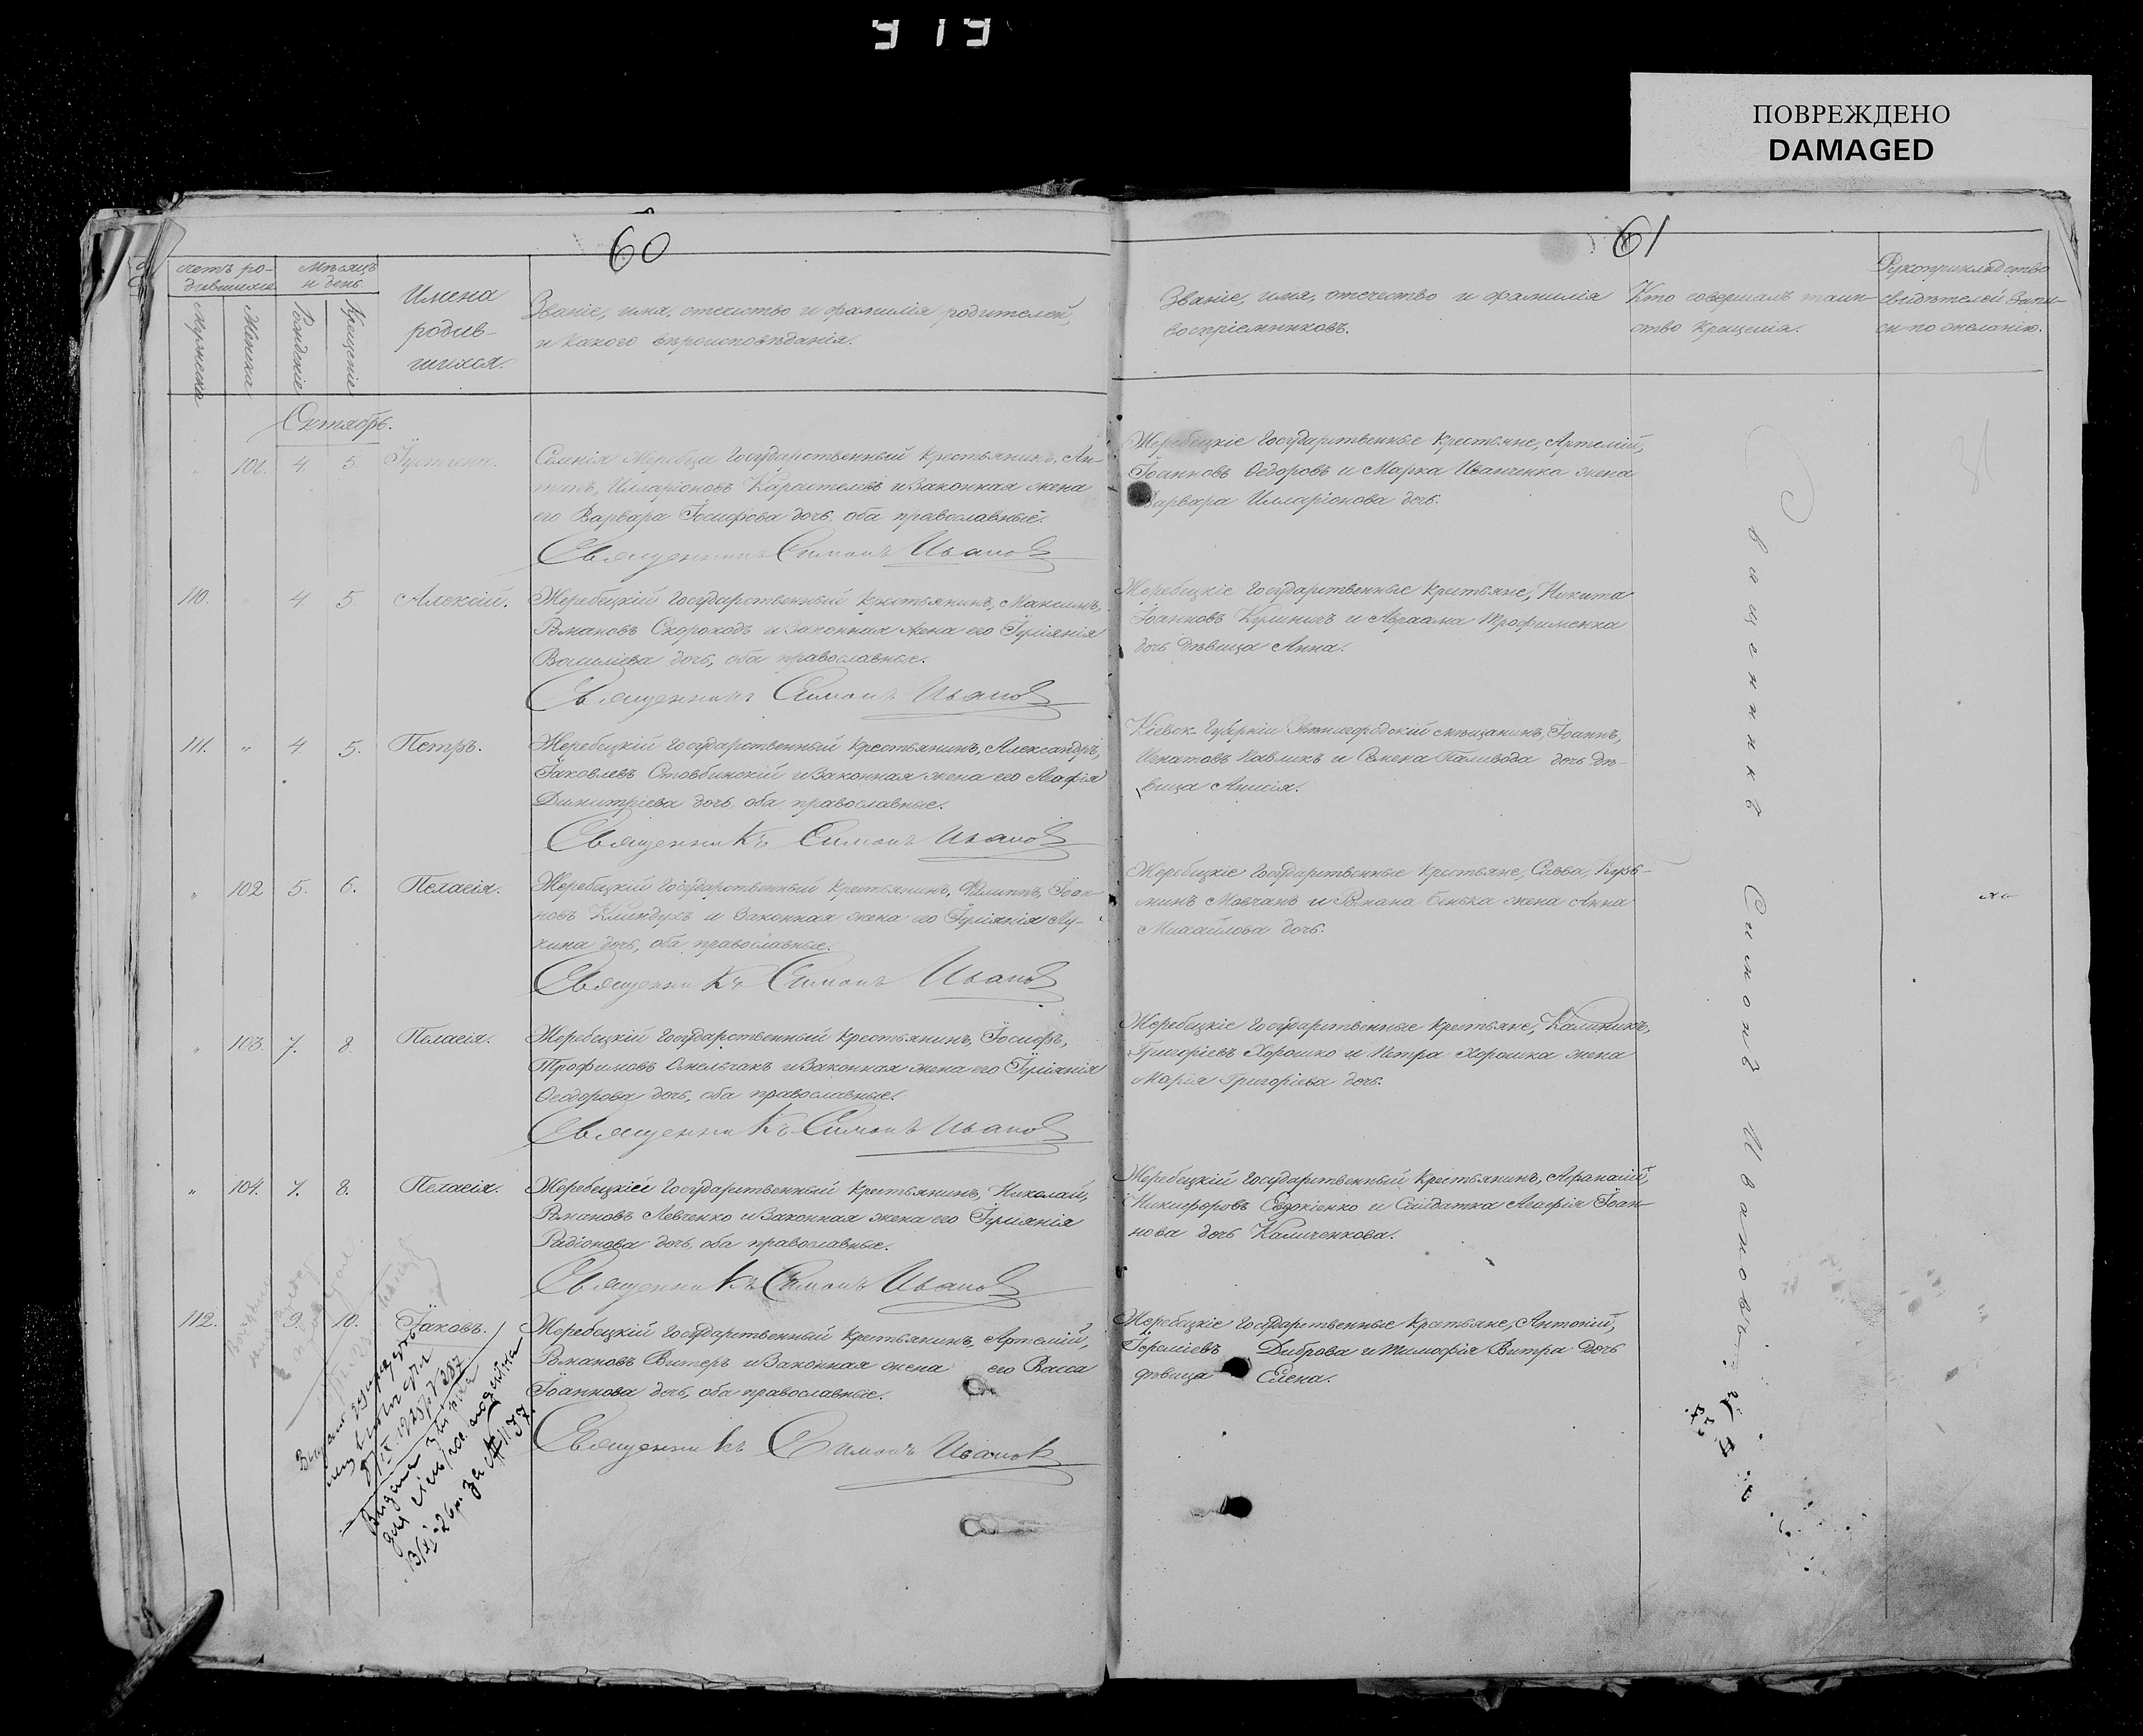 919
ПОВРЕЖДЕНО
DAMAGED
60
Счетъ ро-
дившихся
Мужеска
Женска
Мѣсяцъ
и день
Рожденіе
Крещеніе
Имена
родив-
шихся.
Званіе, имя, отчество и фамилія родителей,
и какого вѣроисповѣданія.
Октябрь.
101. 4. 5. Іустина.
Селенія Жеребца Государственный крестьянинъ, Ан-
типъ, Илларіоновъ и законная жена
его Варвара Іосифова дочь, оба православные.
Священникъ Симонъ Иванов
110. 4 5. Алексій.
Жеребецкій Государственный крестьянинъ, Максимъ,
Романовъ Скороходъ и законная жена его Іуліянія
Васильева дочь, оба православные.
Священникъ Симонъ Иванов
111. " 4. 5. Петръ.
Жеребецкій Государственный крестьянинъ, Александръ,
Іаковлевъ Стовбинскій и законная жена его Агафія
Димитріева дочь, оба православные.
Священникъ Симонъ Иванов
" 102 5. 6. Пелагія.
Жеребецкій Государственный крестьянинъ, Филиппъ, Іоан-
новъ и законная жена его Іуліянія Лу-
кина дочь, оба православные.
Священникъ Симонъ Иванов
" 103. 7. 8. Пелагія.
Жеребецкій Государственный крестьянинъ, Іосифъ,
Трофимовъ Омельчакъ и законная жена его Іуліянія
Ѳеодорова дочь, оба православные.
Священникъ Симонъ Иванов
" 104. 7. 8. Пелагія.
Жеребецкій Государственный крестьянинъ, Николай,
Романовъ Левченко и законная жена его Іуліянія
Радіонова дочь, оба православные.
Священникъ Симонъ Иванов
112. 9. 10. Іаковъ.
Жеребецкій Государственный крестьянинъ, Артемій,
Романовъ Витеръ и законная жена его Васса
Іоаннова дочь, оба православные.
Священникъ Симонъ Иванов
61
Званіе, имя, отчество и фамилія
воспріемниковъ.
Кто совершалъ таин-
ство крещенія.
Рукоприкладство
свидѣтелей запи-
си по желанію.
Жеребецкіе Государственные крестьяне, Артемій,
Іоанновъ Ѳедоровъ и Марка Иванченка жена
Варвара Илларіонова дочь.
Жеребецкіе Государственные крестьяне, Никита
Іоанновъ Кулиничъ и Авраама Трофименка
дочь дѣвица Анна.
Кіевск. Губерніи Звенигородскій мѣщанинъ, Іоаннъ,
Игнатовъ Павликъ и Семена Паливода дочь дѣ-
вица Анисія.
Жеребецкіе Государственные крестьяне, Савва, Кузь-
минъ Мовчанъ и Романа жена Анна
Михайлова дочь.
Жеребецкіе Государственные крестьяне, Калиникъ,
Григоріевъ Хорошко и Петра Хорошка жена
Марія Григоріева дочь.
Жеребецкій Государственный крестьянинъ, Афанасій,
Никифоровъ Евдокіенко и Солдатка Агафія Іоан-
нова дочь Каличенкова.
Жеребецкіе Государственные крестьяне, Антоній,
Іереміевъ Диброва и Тимофія Витра дочь
дѣвица Елена.
Священникъ Симонъ Ивановъ